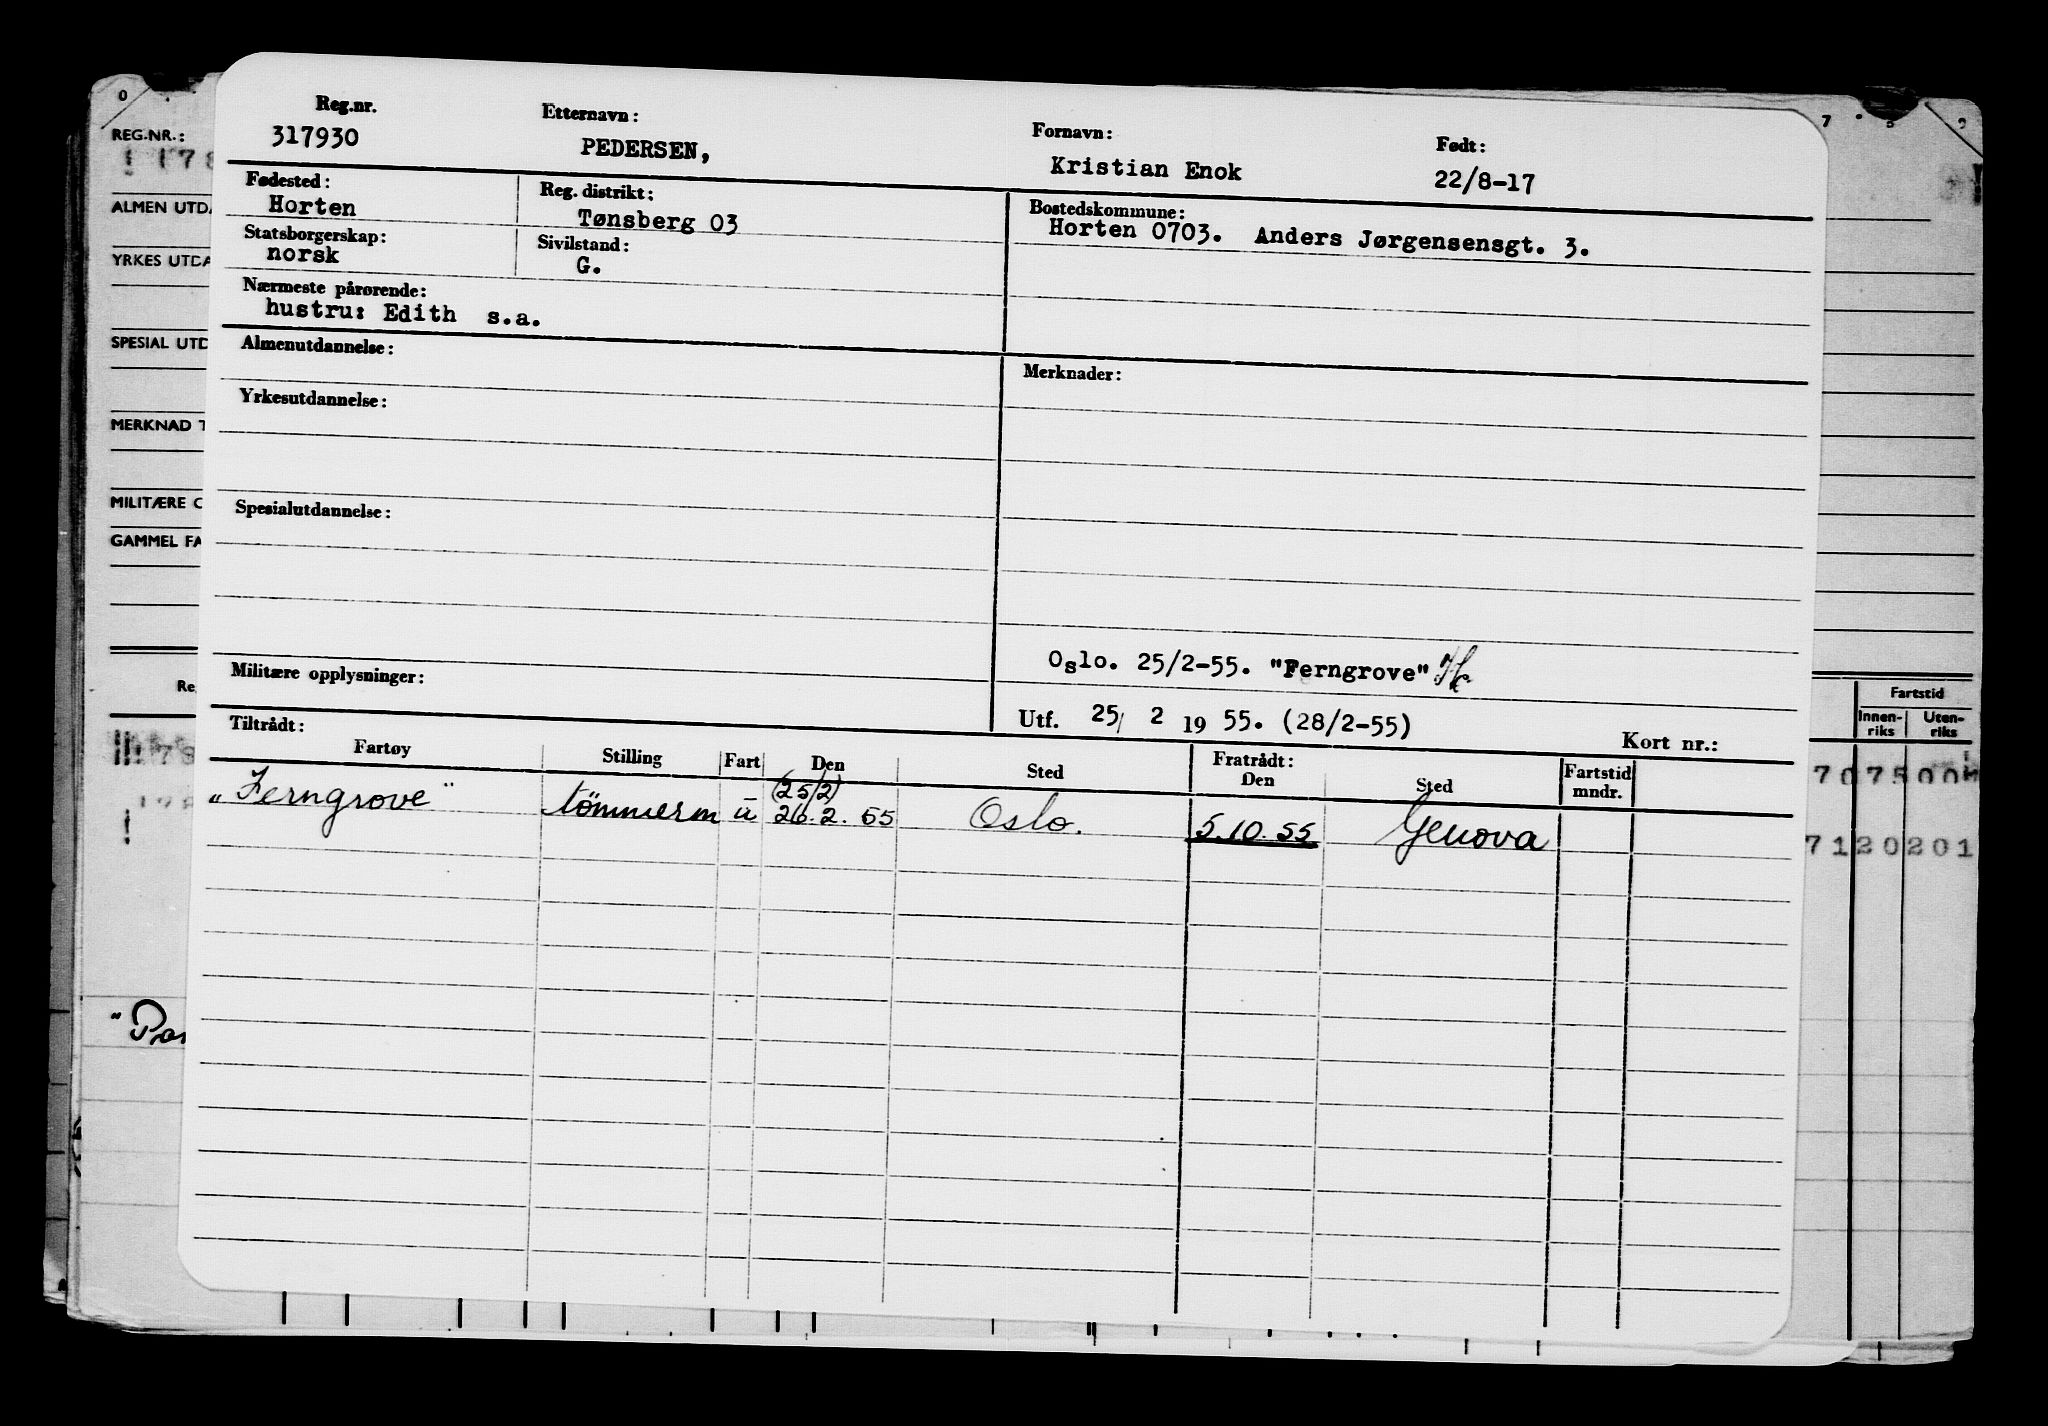 Reg.nr. Etternavn: Fornavn: Født:
317930 PEDERSEN, Kristian Enok 22/8-17
Fødested: Reg. distrikt: Bostedskommune:
Horten Tønsberg 03 Horten 0703. Anders Jørgensensgt. 3.
Statsborgerskap: Sivilstand:
norsk G.
Nærmeste pårørende:
hustru: Edith s.a.
Almenutdannelse: Merknader:
Yrkesutdannelse:
Spesialutdannelse:
Oslo. 25/2-55. "Ferngrove"
Militære opplysninger:
Utf. 25/ 2 19 55. (28/2-55)
Tiltrådt: Kort nr.:
Fartøy Stilling Fart Den Sted Fratrådt: Den Sted Fartstid mndr.
(25/2)
"Ferngrove" tömmerm u 26.2.55 Oslo. 5.10.55 Genova
0
REG.NR.:
178
ALMEN UTDA
YRKES UTDA
SPESIAL UTD
MERKNAD T
MILITÆRE O
GAMMEL FA
Re
78
"Par
7 8 9
Fartstid
Innen-riks Uten-riks
707500
7120201